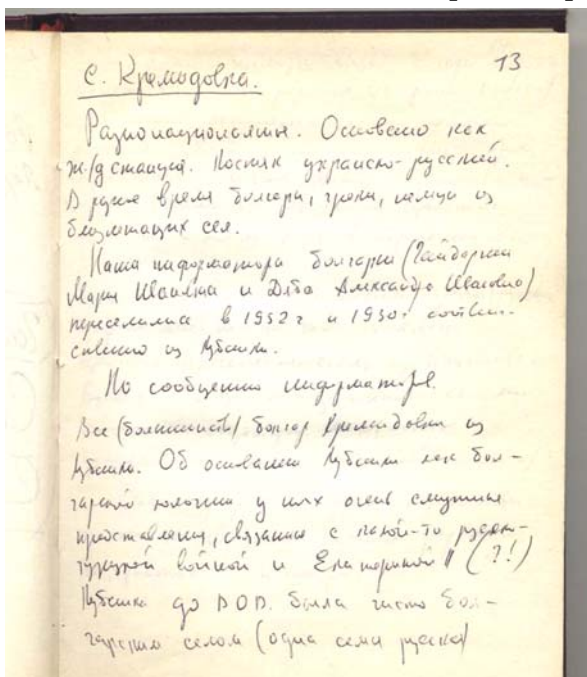 13
с. Кремидовка.
Разнонациональные. Основано как
ж/д станция. Костяк украинско-русский.
В разное время болгары, греки, немцы из
близлежащих сел.
Наши информаторы болгары (Гайдаржи
Мария Ивановна и Дяба Александр Иванович)
переселились в 1952 г и 1930 г соответ-
ственно из Кубанки.
По сообщению информаторов
Все (большинство) болгар Кремидовки из
Кубанки. Об основании Кубанки как бол-
гарской колонии у них очень смутные
представления, связанные с какой-то русско-
турецкой войной и Екатериной II (?!)
Кубанка до ВОВ. была чисто бол-
гарским селом (одна семья русская)